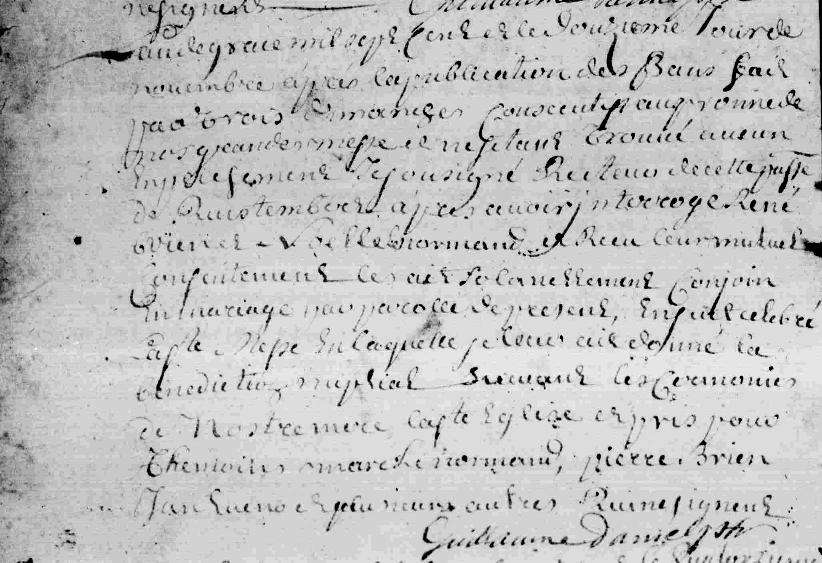 nesignent
an de grace mil sept cent et le douzieme Jour de
novembre apres la publication des Bans fait
par trois dimanches Consecutifs au pronne de
nos grandes messe et nestant trouvé aucun
Empeschement Je sousigné Recteur de cette passe
de apres avoir jnterrogé René
Brien et normand et Receu leur mutuel
Consentement les ait solanellement Conjoin
En mariage par parolle de present, Ensuit celebré
La ste Messe En laquelle je leur ait donné la
benediction nuptial Suivant les Ceremonies
de Nostre mere la ste Eglize et pris pour
themoins normand, pierre Brien
Jan et plusieurs autres Qui ne signent
Guillaume